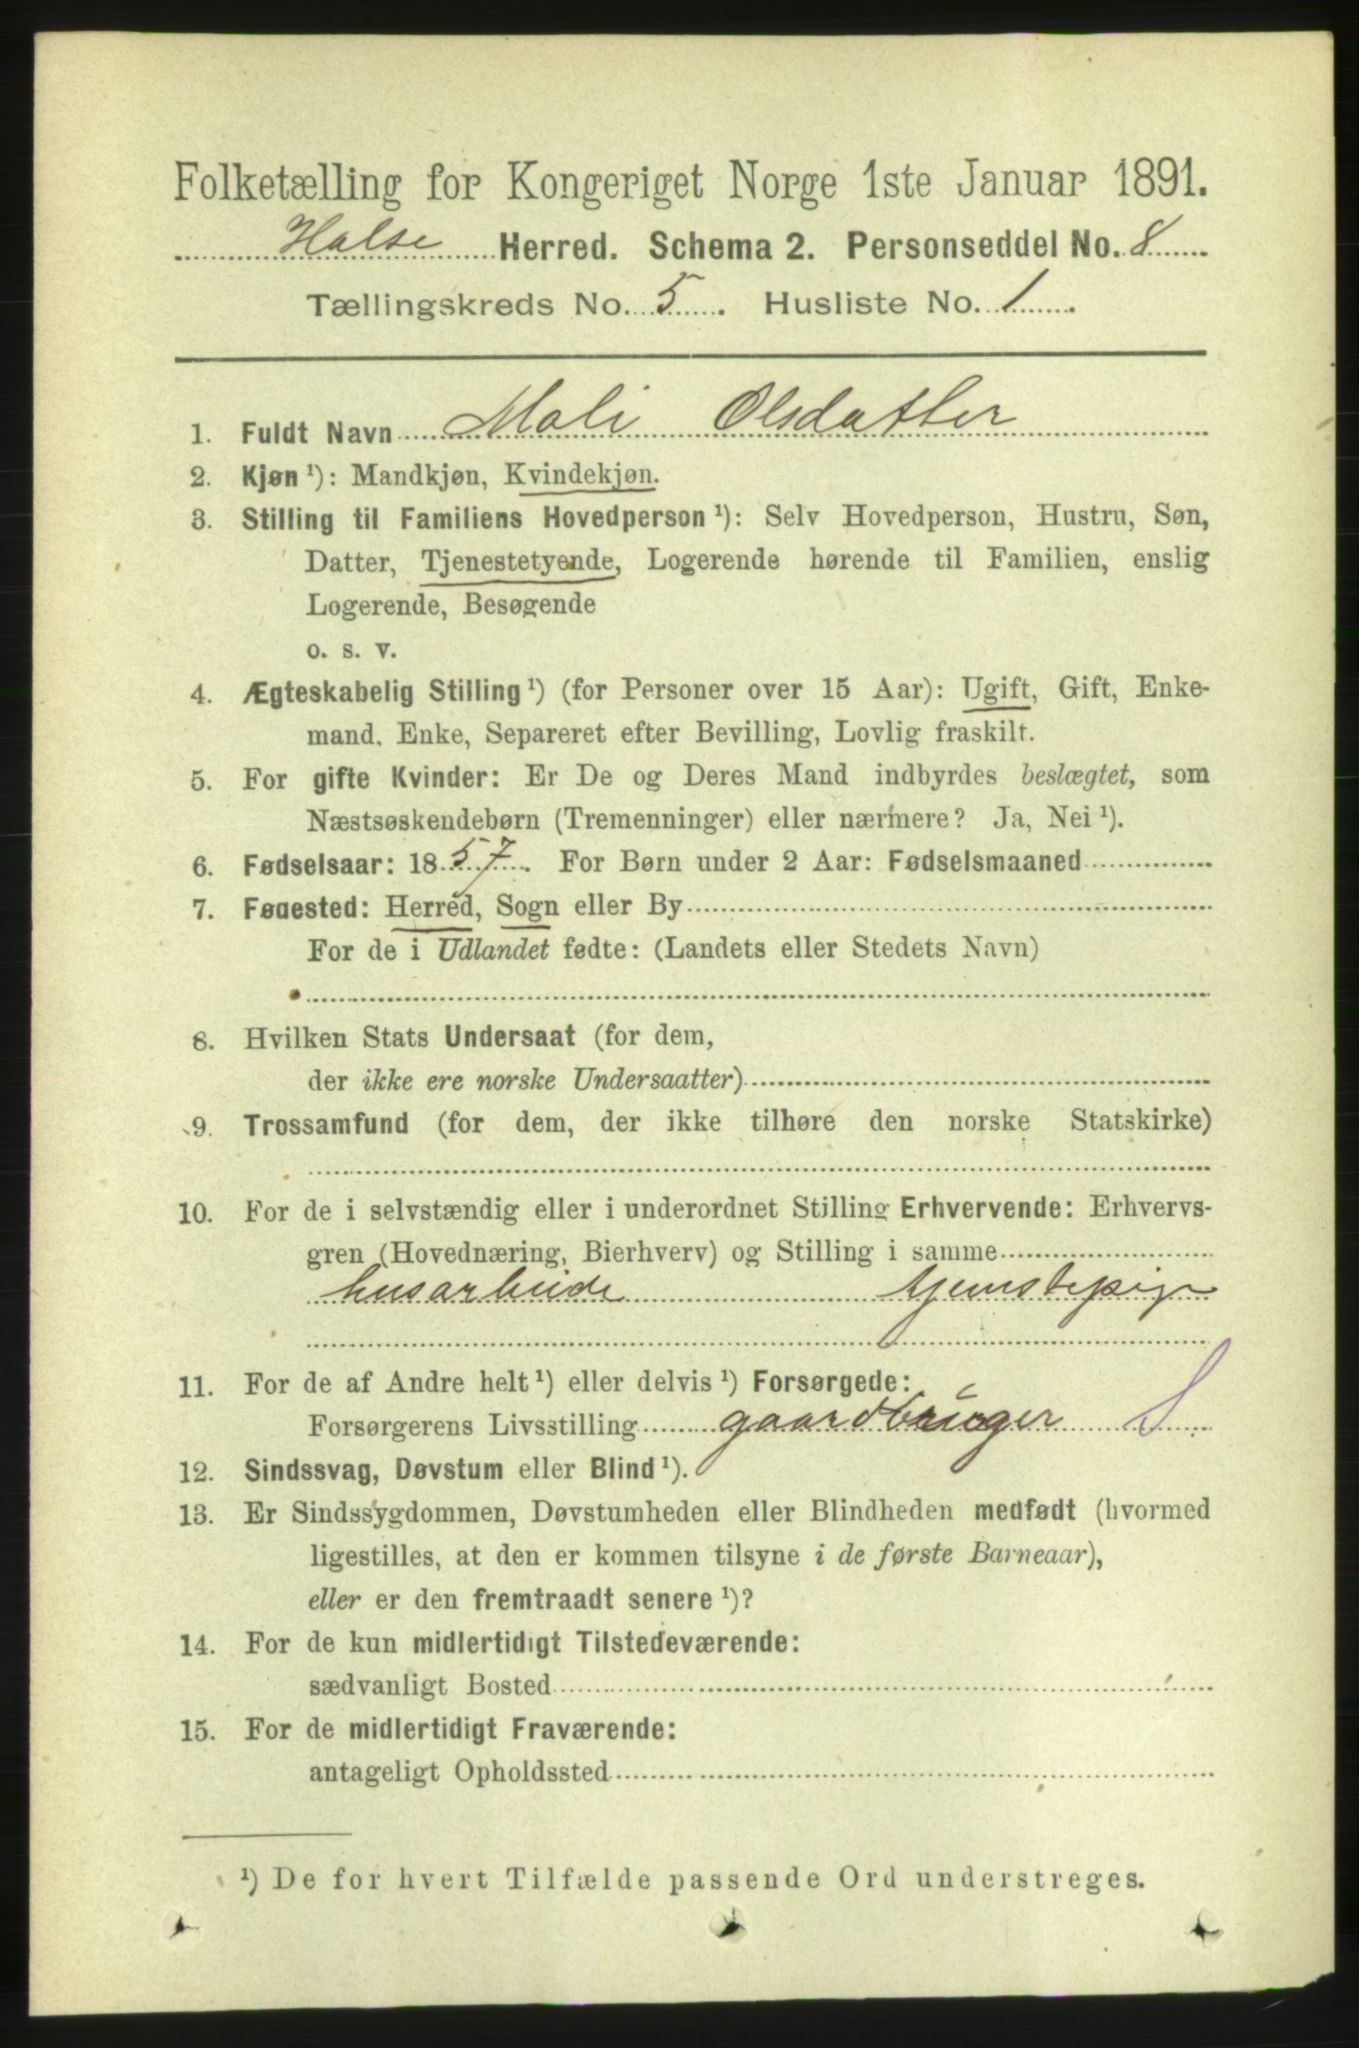 Folketælling for Kongeriget Norge 1ste Januar 1891.
Halse Herred. Schema 2. Personseddel No. 8
Tællingskreds No. 5. Husliste No. 1.
1. Fuldt Navn Mali Olsdatter
2. Kjøn ¹): Mandkjøn, Kvindekjøn.
3. Stilling til Familiens Hovedperson ¹): Selv Hovedperson, Hustru, Søn,
Datter, Tjenestetyende, Logerende hørende til Familien, enslig
Logerende, Besøgende
o. s. v.
4. Ægteskabelig Stilling ¹) (for Personer over 15 Aar): Ugift, Gift, Enke-
mand, Enke, Separeret efter Bevilling, Lovlig fraskilt.
5. For gifte Kvinder: Er De og Deres Mand indbyrdes beslægtet, som
Næstsøskendebørn (Tremenninger) eller nærmere? Ja, Nei ¹).
6. Fødselsaar: 1857. For Børn under 2 Aar: Fødselsmaaned
7. Fødested: Herred, Sogn eller By
For de i Udlandet fødte: (Landets eller Stedets Navn)
8. Hvilken Stats Undersaat (for dem,
der ikke ere norske Undersaatter)
9. Trossamfund (for dem, der ikke tilhøre den norske Statskirke)
10. For de i selvstændig eller i underordnet Stilling Erhvervende: Erhvervs-
gren (Hovednæring, Bierhverv) og Stilling i samme
husarbeide tjenstepige
11. For de af Andre helt ¹) eller delvis ¹) Forsørgede:
Forsørgerens Livsstilling gaardbruger S
12. Sindssvag, Døvstum eller Blind ¹).
13. Er Sindssygdommen, Døvstumheden eller Blindheden medfødt (hvormed
ligestilles, at den er kommen tilsyne i de første Barneaar),
eller er den fremtraadt senere ¹)?
14. For de kun midlertidigt Tilstedeværende:
sædvanligt Bosted
15. For de midlertidigt Fraværende:
antageligt Opholdssted
¹) De for hvert Tilfælde passende Ord understreges.